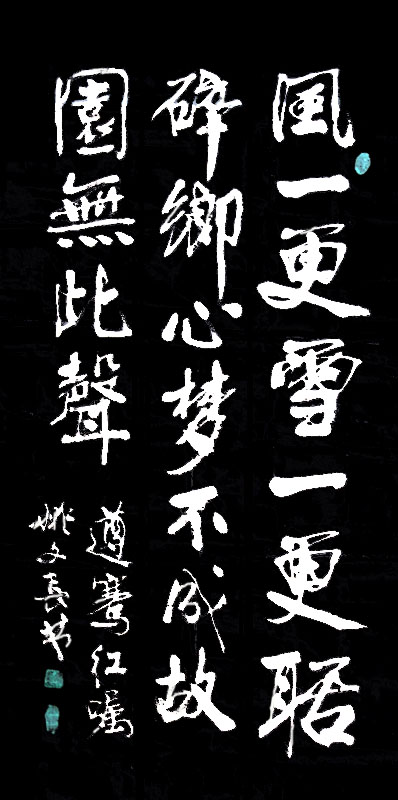 風一更雪一更聒
碎鄉心梦不成故
園無此聲
遵騫红嘱
姚文長书